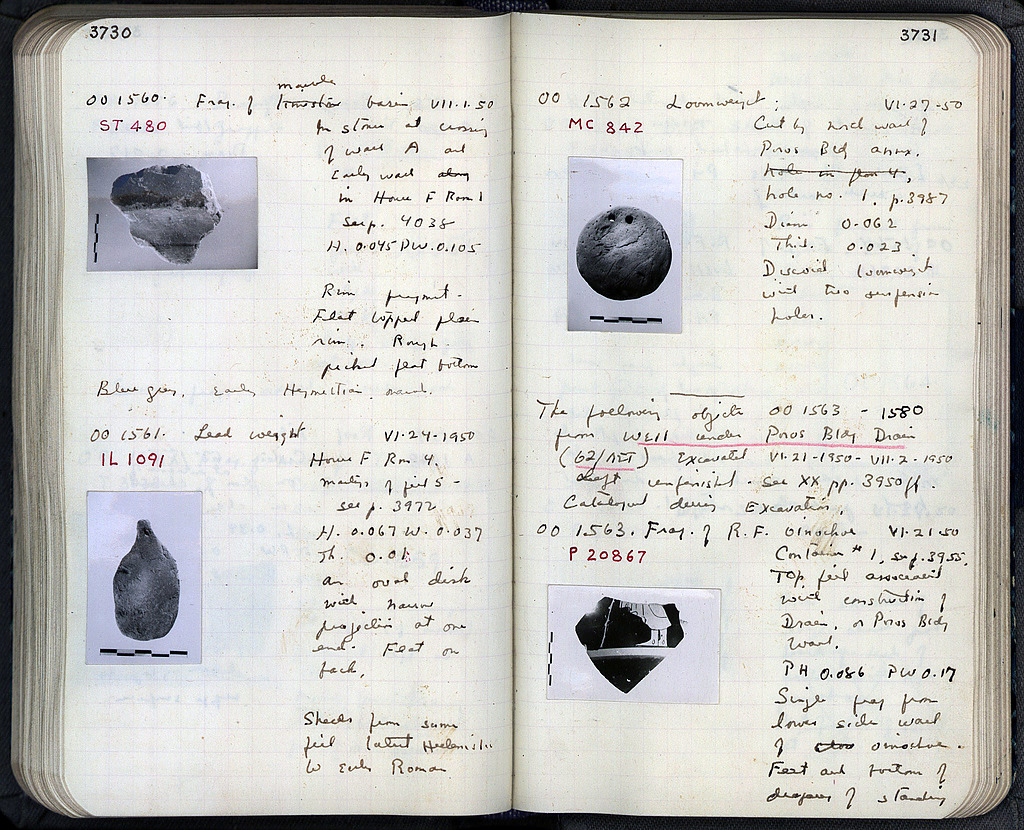 3730
marble
OO 1560. Frag. of limestone basin VII.1.50
ST 480
In stones at crossing
of wall A and
Early wall along
in House F Room 1
See p. 4038
H. 0.045 PW. 0.105
Rim fragment.
Flat topped plain
rim. Rough
picked flat bottom
Blue grey, early Hymettian marble.
OO 1561. Lead weight VI.24-1950
IL 1091
House F Rm 4,
fill 5 -
see p. 3972
H. 0.067 W. 0.037
Th. 0.01
An oval disk
with narrow
projection at one
end. Flat on
back.
Sherds from same
fill latest Hellenistic
to Early Roman.
3731
OO 1562 Loomweight; VI-27-50
MC 842
Cut by north wall of
Poros Bldg annx.
hole in floor 4,
hole no. 1, p. 3987
Diam 0.062
Thick. 0.023
Discoid loomweight
with two suspension
holes.
The following objects OO 1563 - 1580
from Well under Poros Bldg Drain
Excavated VI-21-1950 - VII-2-1950
shaft unfinished. See XX pp. 3950 ff.
Catalogued during Excavation.
OO 1563. Frag. of R.F. oinochoe VI-21.50
P 20867
Container # 1, see p. 3955.
Top fill associated
with construction of
Drain, or Poros Bldg
wall.
PH 0.086 PW 0.17
Single frag from
lower side wall
of oinochoe.
Feet and bottom of
drapery of standing